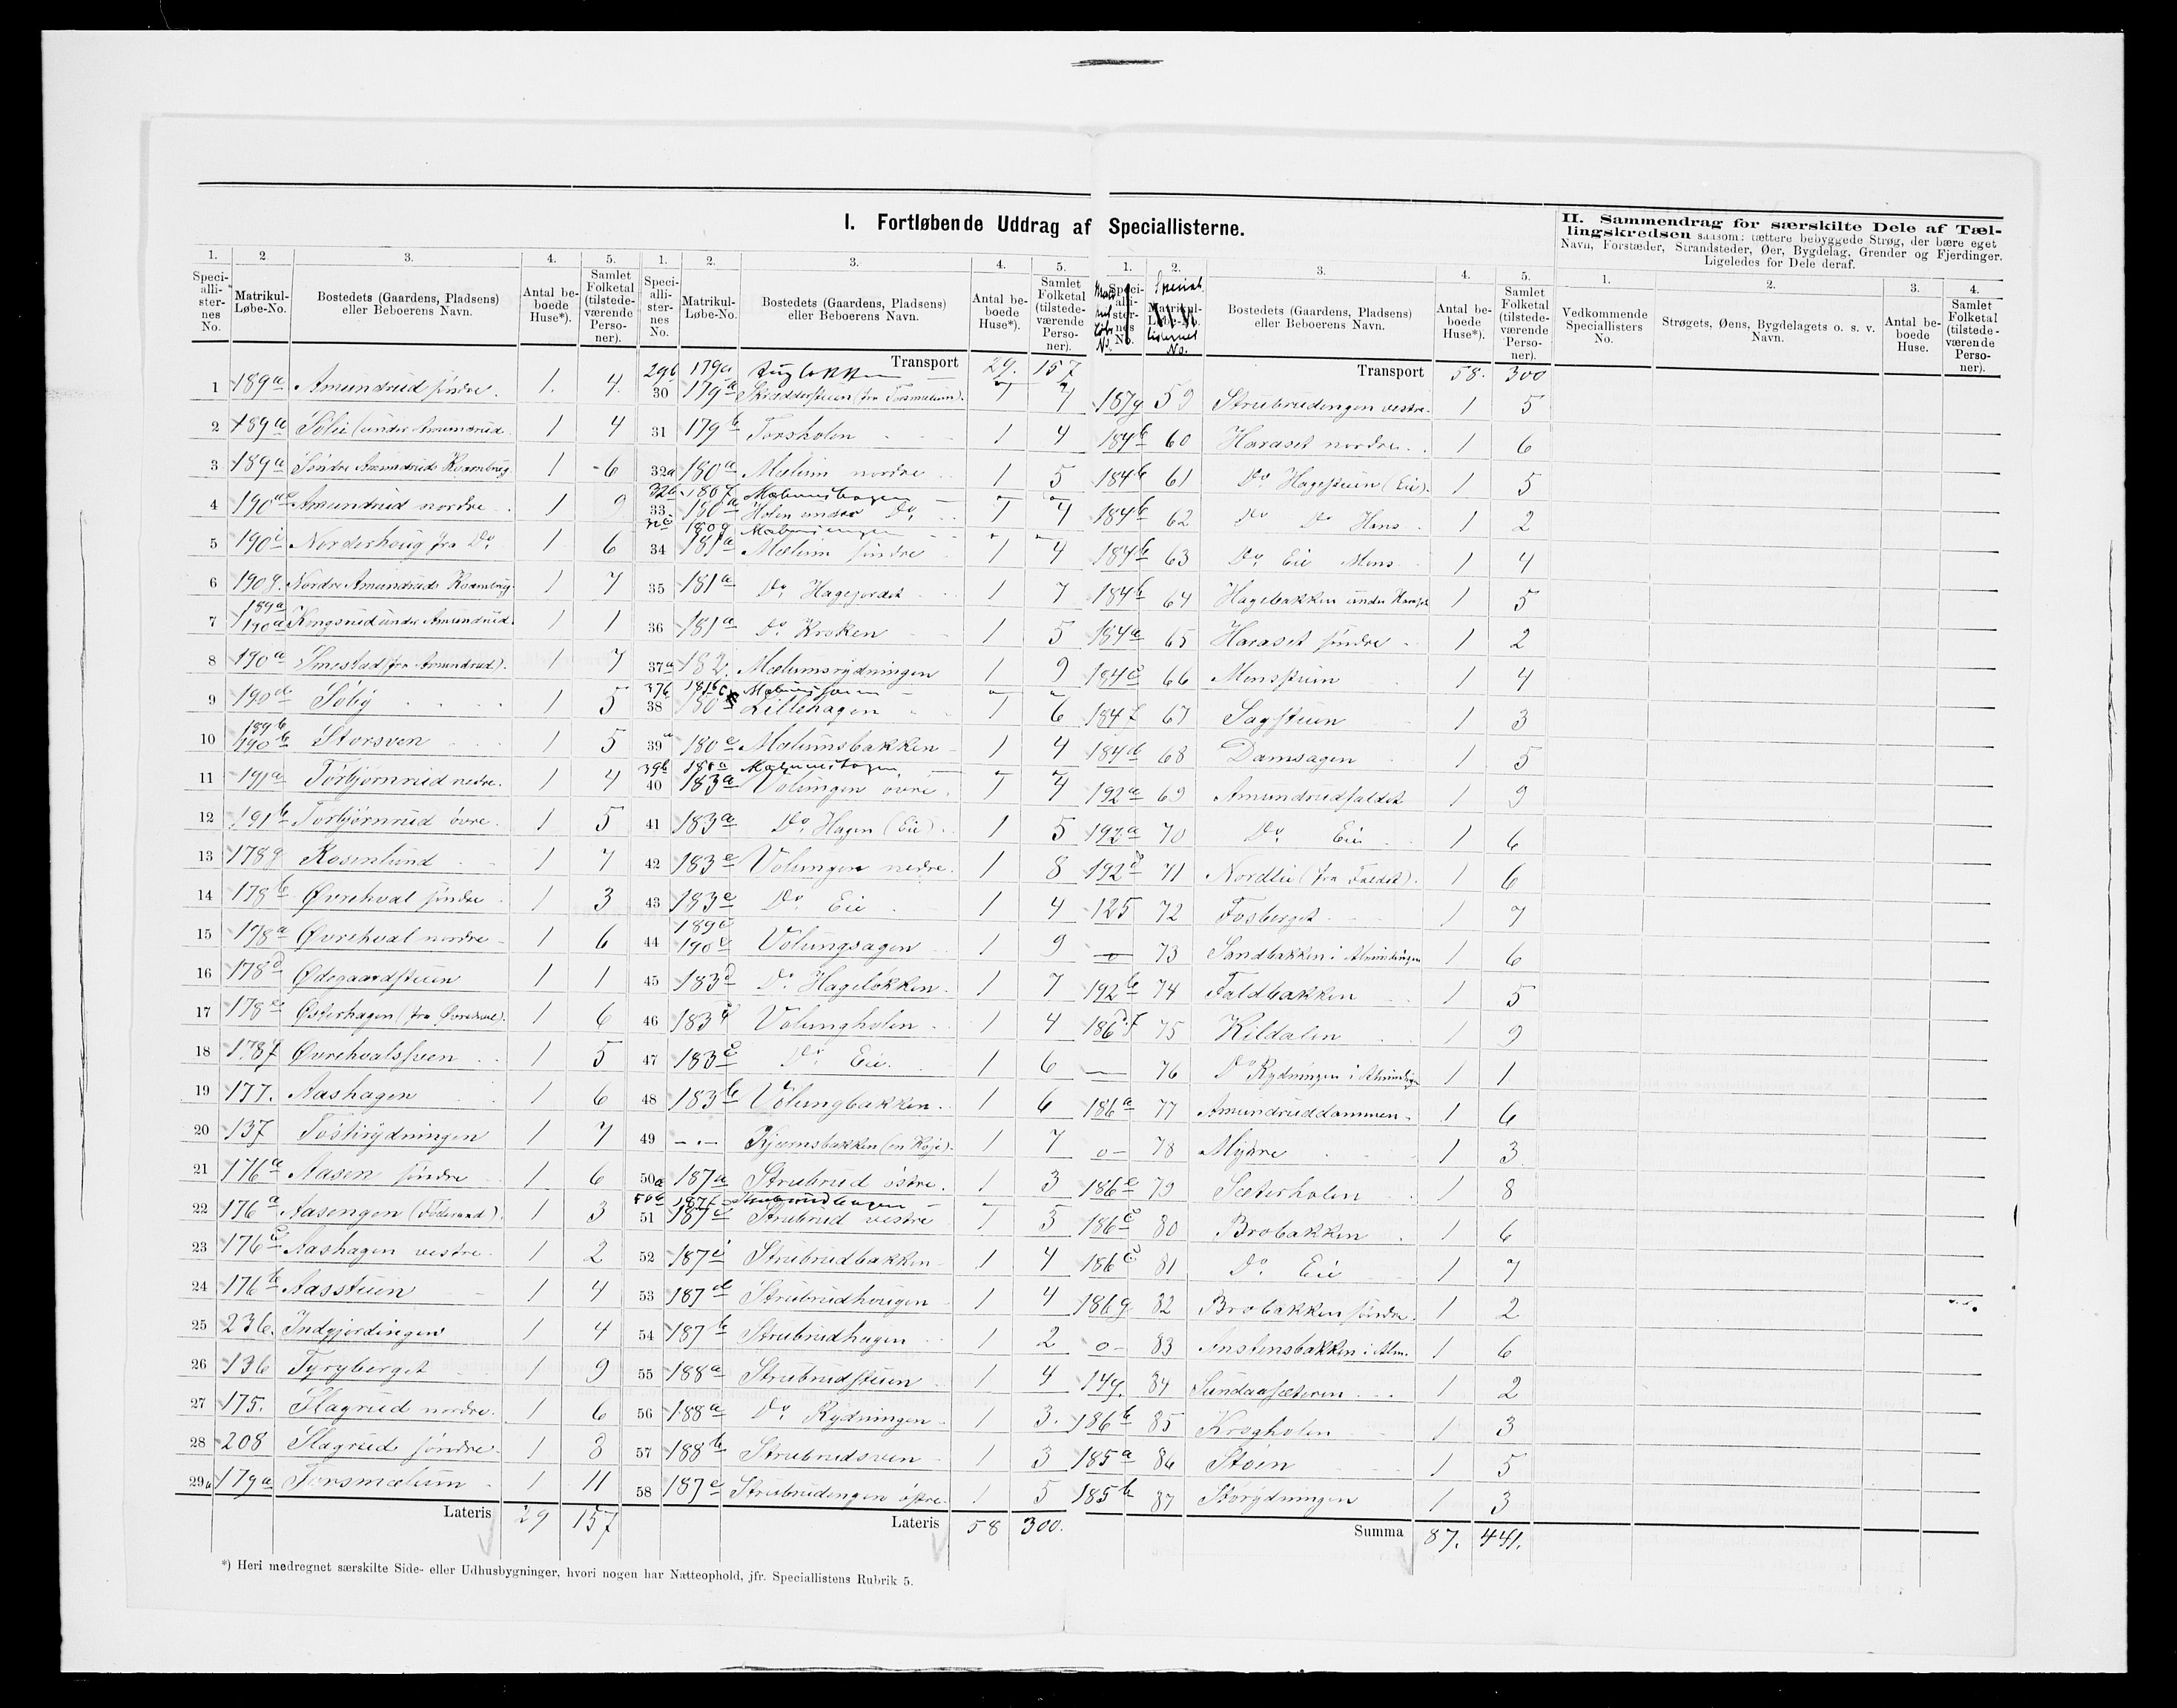 I. Fortløbende Uddrag af Speciallisterne.
II. Sammendrag for særskilte Dele af Tæl-
lingskredsen saasom: tættere bebyggede Strøg, der bære eget
Navn, Forstæder, Strandsteder, Øer, Bygdelag, Grender og Fjerdinger.
Ligeledes for Dele deraf.
1. 2. 3. 4. 5.
Speciallisternes No. Matrikul-Løbe-No. Bostedets (Gaardens, Pladsens) eller Beboerens Navn. Antal beboede Huse*). Samlet Folketal (tilstedeværende Personer).
1 189a Amundrud søndre. 1. 4.
2 189a Sølii (under Amundrud 1 4
3 189a Søndre Amundruds Kvernbrug 1 6
4 190a Amundrud nordre 1 9
5 190 Norderhaug fra Do 1 6
6 190g. Nordre Amundruds Kvernbrug 1 7
7 189a 190a Kongsrud under Amundrud. 1 1
8 190a Smestad (fra Amundrud). 1 7
9 190d Solby 1 5
10 189b 190b Storsven 1 5
11 191a Torbjørnrud nedre. 1 4
12 191b Torbjørnrud övre. 1 5
13 178g Rosenlund 1 7
14 178b Øvrehval søndre 1 3
15 178a Øvrehval nordre 1 6
16 178d Ødegaardstuen 1 1
17 178e Østerhagen (fra Øvrehval). 1 6
18 178f Øvrehvalssven 1 5
19 177. Aashagen 1 6
20 137 Tostirydningen 1 7
21 176a Aasen søndre 1 6
22 176a Aasengen (Föderaad). 1 3
23 176c Aashagen vestre 1 2
24 176b Aasstuen 1 4
25 236. Indgjerdingen 1 4
26 136 Tyryberget 1 9
27 175. Slagrud nordre. 1 6
28 208 Slagrud søndre 1 3
29a 179a Forsmælum 1 11
Lateris 29 157
1. 2. 3. 4. 5.
Speciallisternes No. Matrikul-Løbe-No. Bostedets (Gaardens, Pladsens) eller Beboerens Navn. Antal beboede Huse*). Samlet Folketal (tilstedeværende Personer).
Transport 29. 157
29b 179a
30 179a Skræddersteen (fra Forsmælum). 1 4
31 179b Forsholen 1 4
32a 180a Mælum nordre 1 5
32b 180f Mælumshagen
33 180a Holen under Do 1 4
32c 180g
34 181a Mælum søndre 1 4
35 181a Do Hagejordet 1 7
36 181a Do Kroken 1 5
37a 182. Mælumsrydningen 1 9
37b 181b
38 180 Lillehagen 1 6
39a 180e Mælumsbakken 1 4
39b 181a Mælumshagen
40 183a Volungen øvre. 1 4
41 183a Do Hagen (Eie). 1 5
42 183c Volungen nedre. 1 8
43 183c Do Eie 1 4
44 189c 190c Volungsagen 1 9
45 183d Do Hageløkken. 1 7
46 183 Volungholen 1 4
47 183 Do Eie. 1 6
48 183b Volungbakken. 1 6
49 - · - Kjernsbakken (en Koje). 1 7
50a 187a Strubrud østre. 1 3
50b 187f Strubrudhagen
51 187c Strubrud vestre 1 5
52 187i Strubrudbakken 1 4
53 187d Strubrudhougen 1 4
54 187b Strubrudhagen 1 2
55 188a Strubrudstuen 1 4
56 188a Do Rydningen 1 3.
57 188b Strubrudsven 1 3
58 187e Strubrudengen østre. 1 5
Lateris 58 300.
1. 2. 3. 4. 5.
Speciallisternes No. Matrikul-Løbe-No. Bostedets (Gaardens, Pladsens) eller Beboerens Navn. Antal beboede Huse*). Samlet Folketal (tilstedeværende Personer).
Transport 58. 300
187g 59 Strubrudengen vestre. 1 5
184b 60 Haraset nordre. 1 6
184b 61 Do Hagestuen (Eie). 1 5
184b 62 Do Do Hans 1 2
184b 63 Do Eie Mons 1 4
184b 64 Hagebakken under 1 5
184a 65 Haraset søndre 1 2
184c 66 Monsstuen 1 4
184f 67 Sagstuen 1 3
184d 68 Damsagen 1 5
192a 69 Amundrudfaldet 1 9
192a 70 Do Eie 1 6
192d 71 Nordlie (fra Faldet). 1 6
125 72 Fosberget 1 7
o 73 Sandbakken i Almindingen 1 6
192b 74 Faldbakken 1 5
186d.f 75 Kildalen 1 9
— 76 Do Rydningen i 1 1
186a 77 Amundruddammen. 1 6
o- 78 Myhre 1 3
186c 79 Sæterholen 1 8
186c 80 Brobakken 1 6
186c 81 Do Eie 1 7
186g 82 Brobakken søndre. 1 2
o- 83 Anstensbakken i Alm. 1 6
149. 84 Sundaasæteren 1 2
186b 85 Krogholen 1 3
185a 86 Støen 1 5
185b 87 Storydningen 1 3
Summa 87. 441.
1. 2. 3. 4.
Vedkommende Speciallisters No. Strøgets, Øens, Bygdelagets o. s. v. Navn. Antal beboede Huse. Samlet Folketal (tilstedeværende Personer).
*) Heri medregnet særskilte Side- eller Udhusbygninger, hvori nogen har Natteophold, jfr. Speciallistens Rubrik 5.